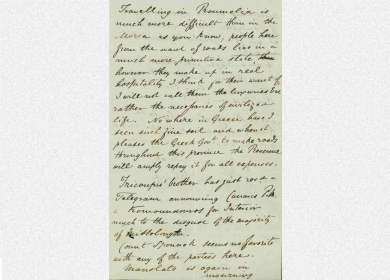 Travelling in Roumelia is
much more difficult than in the
Morea as you know, people here
from the want of roads live in a
much more primitive state,
however they make up in real
hospitality I think for their want of
I will not call them the luxuries but
rather the necessaries of civilized
life. No where in Greece have I
seen such fine soil and when it
pleases the Greek Govt to make roads
throughout this province the Revenue
will amply repay it for all expenses.
Tricoupis' brother has just read a
Telegram announcing Canaris
Komoundouros for Interior
much to the disgust of the majority
of Missolonghi.
Count seems no favorite
with any of the parties here.
is again in
mourning